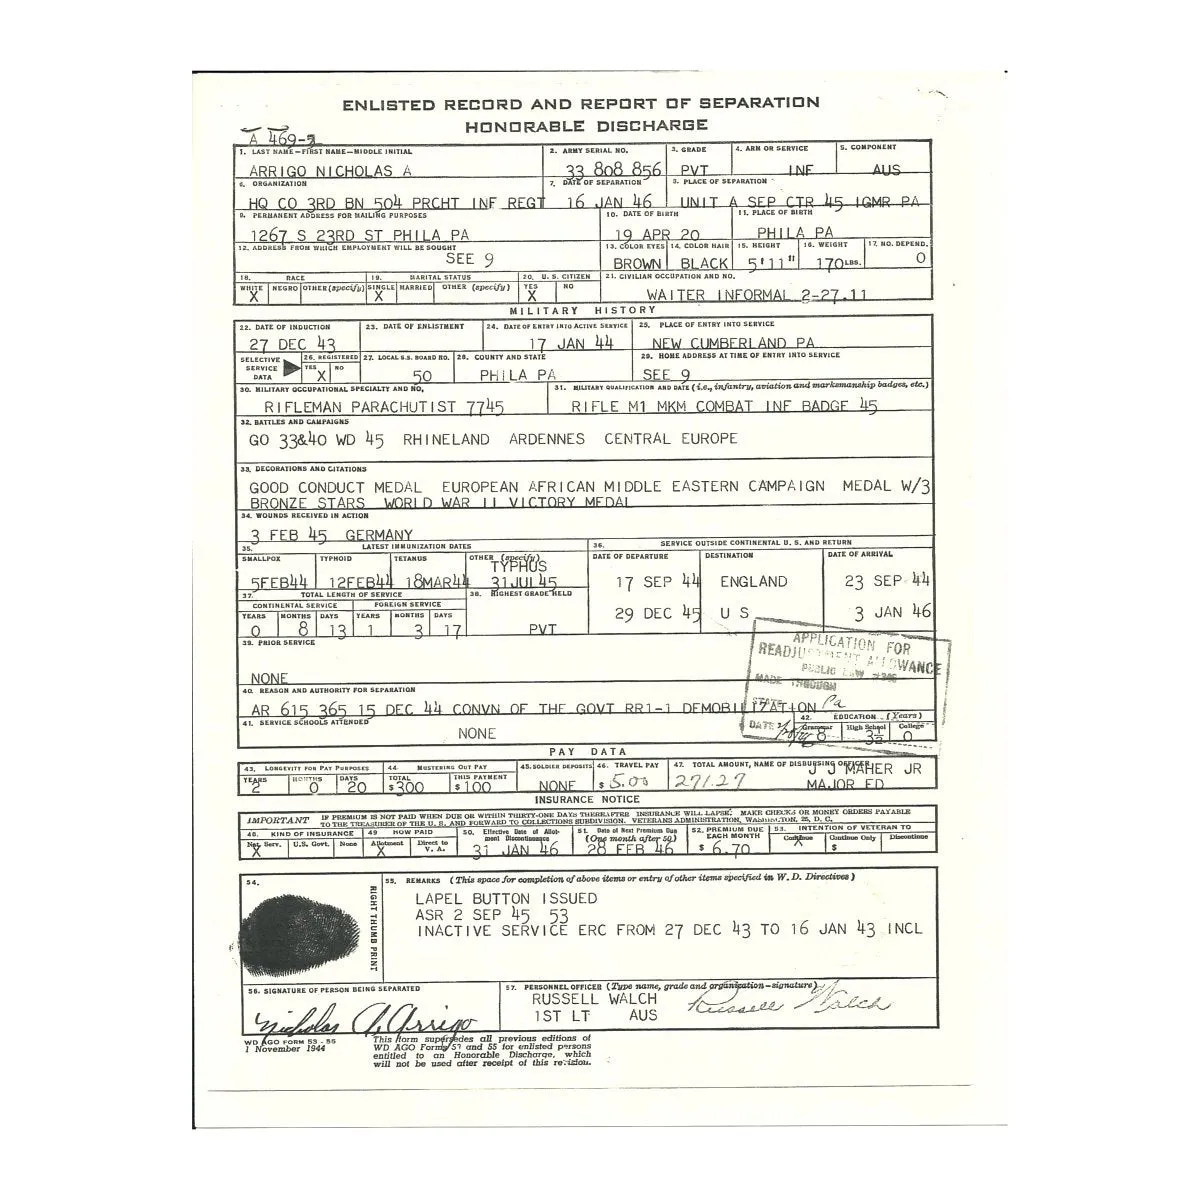 ENLISTED RECORD AND REPORT OF SEPARATION
HONORABLE DISCHARGE
A 469-
1. LAST NAME—FIRST NAME—MIDDLE INITIAL 2. ARMY SERIAL NO. 3. GRADE 4. ARM OR SERVICE 5. COMPONENT
ARRIGO NICHOLAS A 33 808 856 PVT INF AUS
6. ORGANIZATION 7. DATE OF SEPARATION 8. PLACE OF SEPARATION
HQ CO 3RD BN 504 PRCHT INF REGT 16 JAN 46 UNIT A SEP CTR 45 IGMR PA
9. PERMANENT ADDRESS FOR MAILING PURPOSES 10. DATE OF BIRTH 11. PLACE OF BIRTH
1267 S 23RD ST PHILA PA 19 APR 20 PHILA PA
12. ADDRESS FROM WHICH EMPLOYMENT WILL BE SOUGHT 13. COLOR EYES 14. COLOR HAIR 15. HEIGHT 16. WEIGHT 17. NO. DEPEND.
SEE 9 BROWN BLACK 5'11" 170 LBS. 0
18. RACE 19. MARITAL STATUS 20. U. S. CITIZEN 21. CIVILIAN OCCUPATION AND NO.
WHITE NEGRO OTHER (specify) SINGLE MARRIED OTHER (specify) YES NO
X X X WAITER INFORMAL 2-27.11
MILITARY HISTORY
22. DATE OF INDUCTION 23. DATE OF ENLISTMENT 24. DATE OF ENTRY INTO ACTIVE SERVICE 25. PLACE OF ENTRY INTO SERVICE
27 DEC 43 17 JAN 44 NEW CUMBERLAND PA
SELECTIVE SERVICE DATA 26. REGISTERED YES NO 27. LOCAL S.S. BOARD NO. 28. COUNTY AND STATE 29. HOME ADDRESS AT TIME OF ENTRY INTO SERVICE
X 50 PHILA PA SEE 9
30. MILITARY OCCUPATIONAL SPECIALTY AND NO. 31. MILITARY QUALIFICATION AND DATE (i.e., infantry, aviation and marksmanship badges, etc.)
RIFLEMAN PARACHUTIST 7745 RIFLE M1 MKM COMBAT INF BADGE 45
32. BATTLES AND CAMPAIGNS
GO 33&40 WD 45 RHINELAND ARDENNES CENTRAL EUROPE
33. DECORATIONS AND CITATIONS
GOOD CONDUCT MEDAL EUROPEAN AFRICAN MIDDLE EASTERN CAMPAIGN MEDAL W/3
BRONZE STARS WORLD WAR II VICTORY MEDAL
34. WOUNDS RECEIVED IN ACTION
3 FEB 45 GERMANY
35. LATEST IMMUNIZATION DATES 36. SERVICE OUTSIDE CONTINENTAL U. S. AND RETURN
SMALLPOX TYPHOID TETANUS OTHER (specify) DATE OF DEPARTURE DESTINATION DATE OF ARRIVAL
TYPHUS
5FEB44 12FEB44 18MAR44 31JUL45 17 SEP 44 ENGLAND 23 SEP 44
37. TOTAL LENGTH OF SERVICE 38. HIGHEST GRADE HELD
CONTINENTAL SERVICE FOREIGN SERVICE
YEARS MONTHS DAYS YEARS MONTHS DAYS 29 DEC 45 U S 3 JAN 46
0 8 13 1 3 17 PVT
39. PRIOR SERVICE
NONE
APPLICATION FOR
READJUSTMENT ALLOWANCE
PUBLIC LAW #346
MADE THROUGH
STATE Pa
DATE
40. REASON AND AUTHORITY FOR SEPARATION
AR 615 365 15 DEC 44 CONVN OF THE GOVT RR1-1 DEMOBILIZATION
41. SERVICE SCHOOLS ATTENDED 42. EDUCATION (Years)
Grammar High School College
NONE 8 3½ 0
PAY DATA
43. LONGEVITY FOR PAY PURPOSES 44. MUSTERING OUT PAY 45. SOLDIER DEPOSITS 46. TRAVEL PAY 47. TOTAL AMOUNT, NAME OF DISBURSING OFFICER
YEARS MONTHS DAYS TOTAL THIS PAYMENT J J MAHER JR
2 0 20 $300 $100 NONE $5.00 271.27 MAJOR FD
INSURANCE NOTICE
IMPORTANT IF PREMIUM IS NOT PAID WHEN DUE OR WITHIN THIRTY-ONE DAYS THEREAFTER, INSURANCE WILL LAPSE. MAKE CHECKS OR MONEY ORDERS PAYABLE
TO THE TREASURER OF THE U. S. AND FORWARD TO COLLECTIONS SUBDIVISION, VETERANS ADMINISTRATION, WASHINGTON, 25, D. C.
48. KIND OF INSURANCE 49. HOW PAID 50. Effective Date of Allotment Discontinuance 51. Date of Next Premium Due (One month after 50) 52. PREMIUM DUE EACH MONTH 53. INTENTION OF VETERAN TO
Nat. Serv. U.S. Govt. None Allotment Direct to V. A. Continue Continue Only Discontinue
X X 31 JAN 46 28 FEB 46 $ 6.70 X $
54. RIGHT THUMB PRINT
55. REMARKS (This space for completion of above items or entry of other items specified in W. D. Directives)
LAPEL BUTTON ISSUED
ASR 2 SEP 45 53
INACTIVE SERVICE ERC FROM 27 DEC 43 TO 16 JAN 43 INCL
56. SIGNATURE OF PERSON BEING SEPARATED 57. PERSONNEL OFFICER (Type name, grade and organization—signature)
Nicholas A. Arrigo
RUSSELL WALCH Russell Walch
1ST LT AUS
WD AGO FORM 53 - 55
1 November 1944
This form supersedes all previous editions of
WD AGO Forms 53 and 55 for enlisted persons
entitled to an Honorable Discharge, which
will not be used after receipt of this revision.